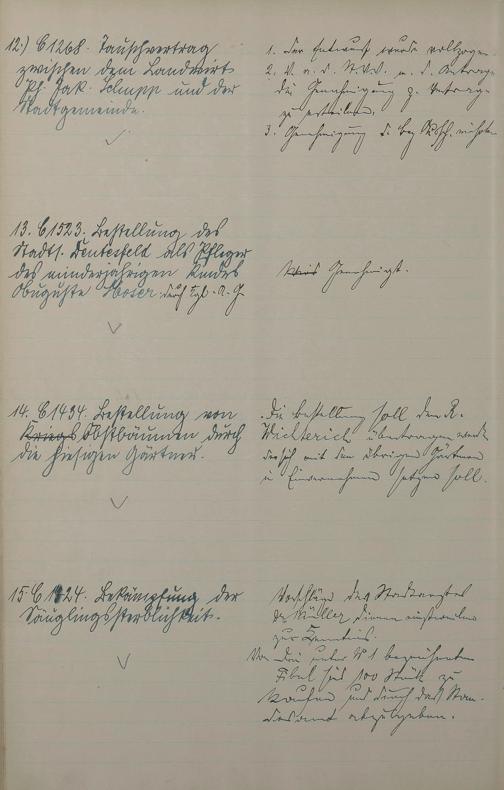 12.) C 1268. Tauschvertrag
zwischen dem Landwirt
Ph. Jak. Schupp und der
Stadtgemeinde.
1. Der Entwurf wurde vollzogen.
die Genehmigung z. Vertrage
zu erteilen.
3. Genehmigung d. Bez
13. C 1523. Bestellung des
Stadts. Deutesfeld als Pfleger
des minderjährigen Kindes
Auguste Moser durch Kgl. A. G.
Genehmigt.
14. C 1434. Bestellung von
Kriegs Obstbäumen durch
die hiesigen Gärtner.
Die Bestellung soll dem K.
Wichterich übertragen werden
der sich mit den übrigen Gärtnern
in Einvernehmen setzen soll.
15. C 1124. Bekämpfung der
Säuglingssterblichkeit.
Vorschläge des Stadtarztes
Dr. Müller dienen einstweilen
zur Kenntnis.
Von der unter N° 1 bezeichneten
Fibel sind 100 Stück zu
kaufen und durch das Stan-
desamt abzugeben.